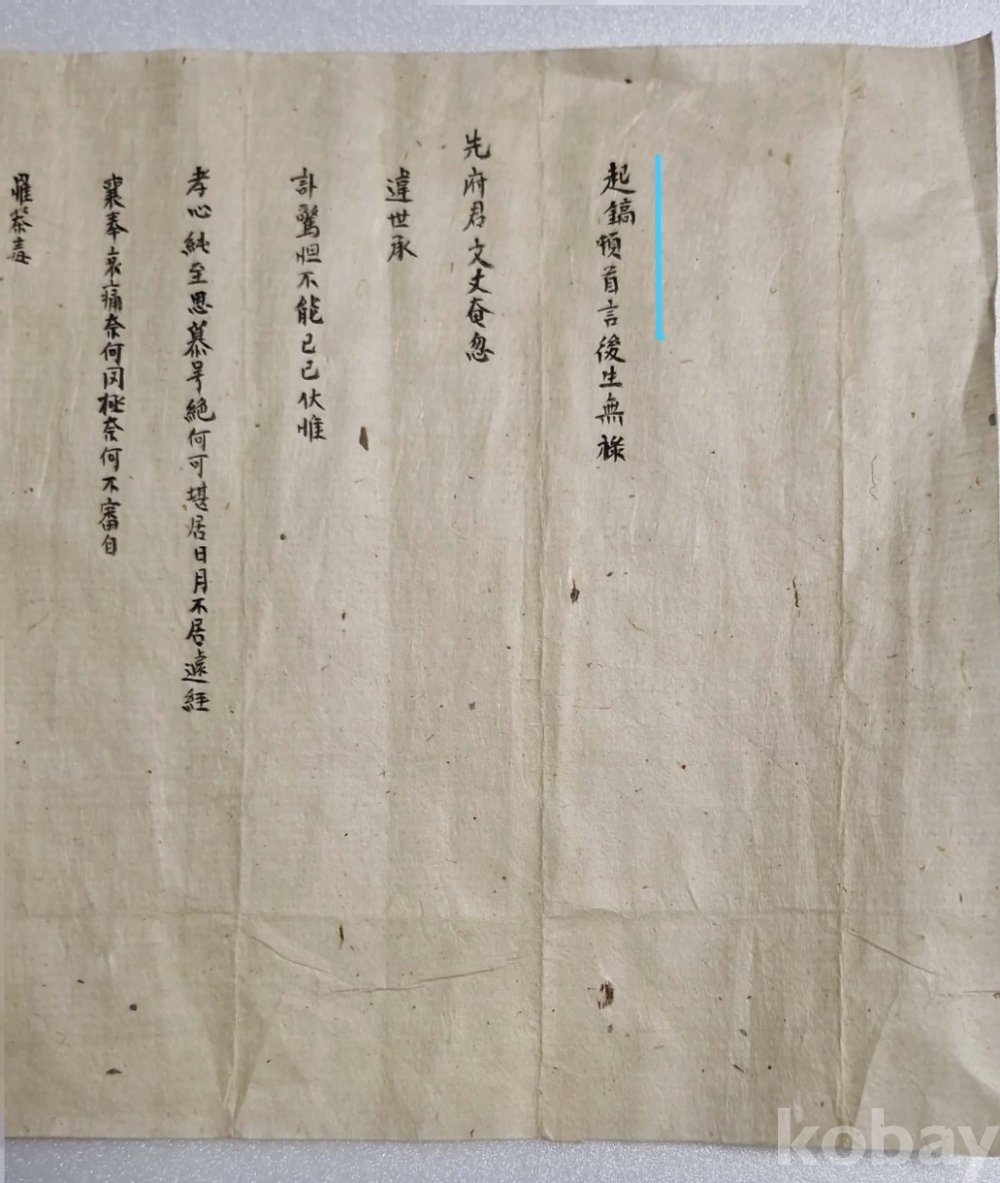 起鎬頓首言後生無祿
先府君文丈奄忽
違世承
訃驚怛不能已已伏惟
孝心純至思慕号絶何可堪居日月不居遽経
襄奉哀痛奈何罔極奈何不審自
罹荼毒
kobay